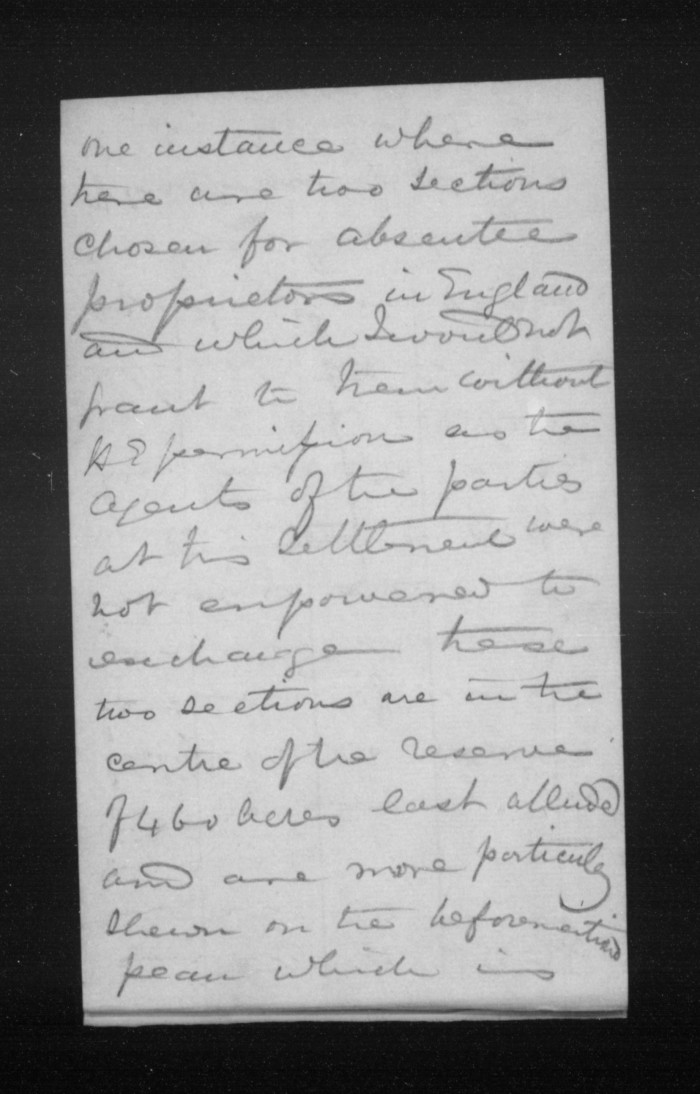 one instance where
there are two sections
chosen for absentee
proprietors in England
and which I would not
grant to them without
H E permission as the
agents of the parties
at this Settlement were
not empowered to
exchange these
two sections are in the
centre of the reserve
of 460 acres last alluded
and are more particularly
shewn on the beforementioned
plan which is